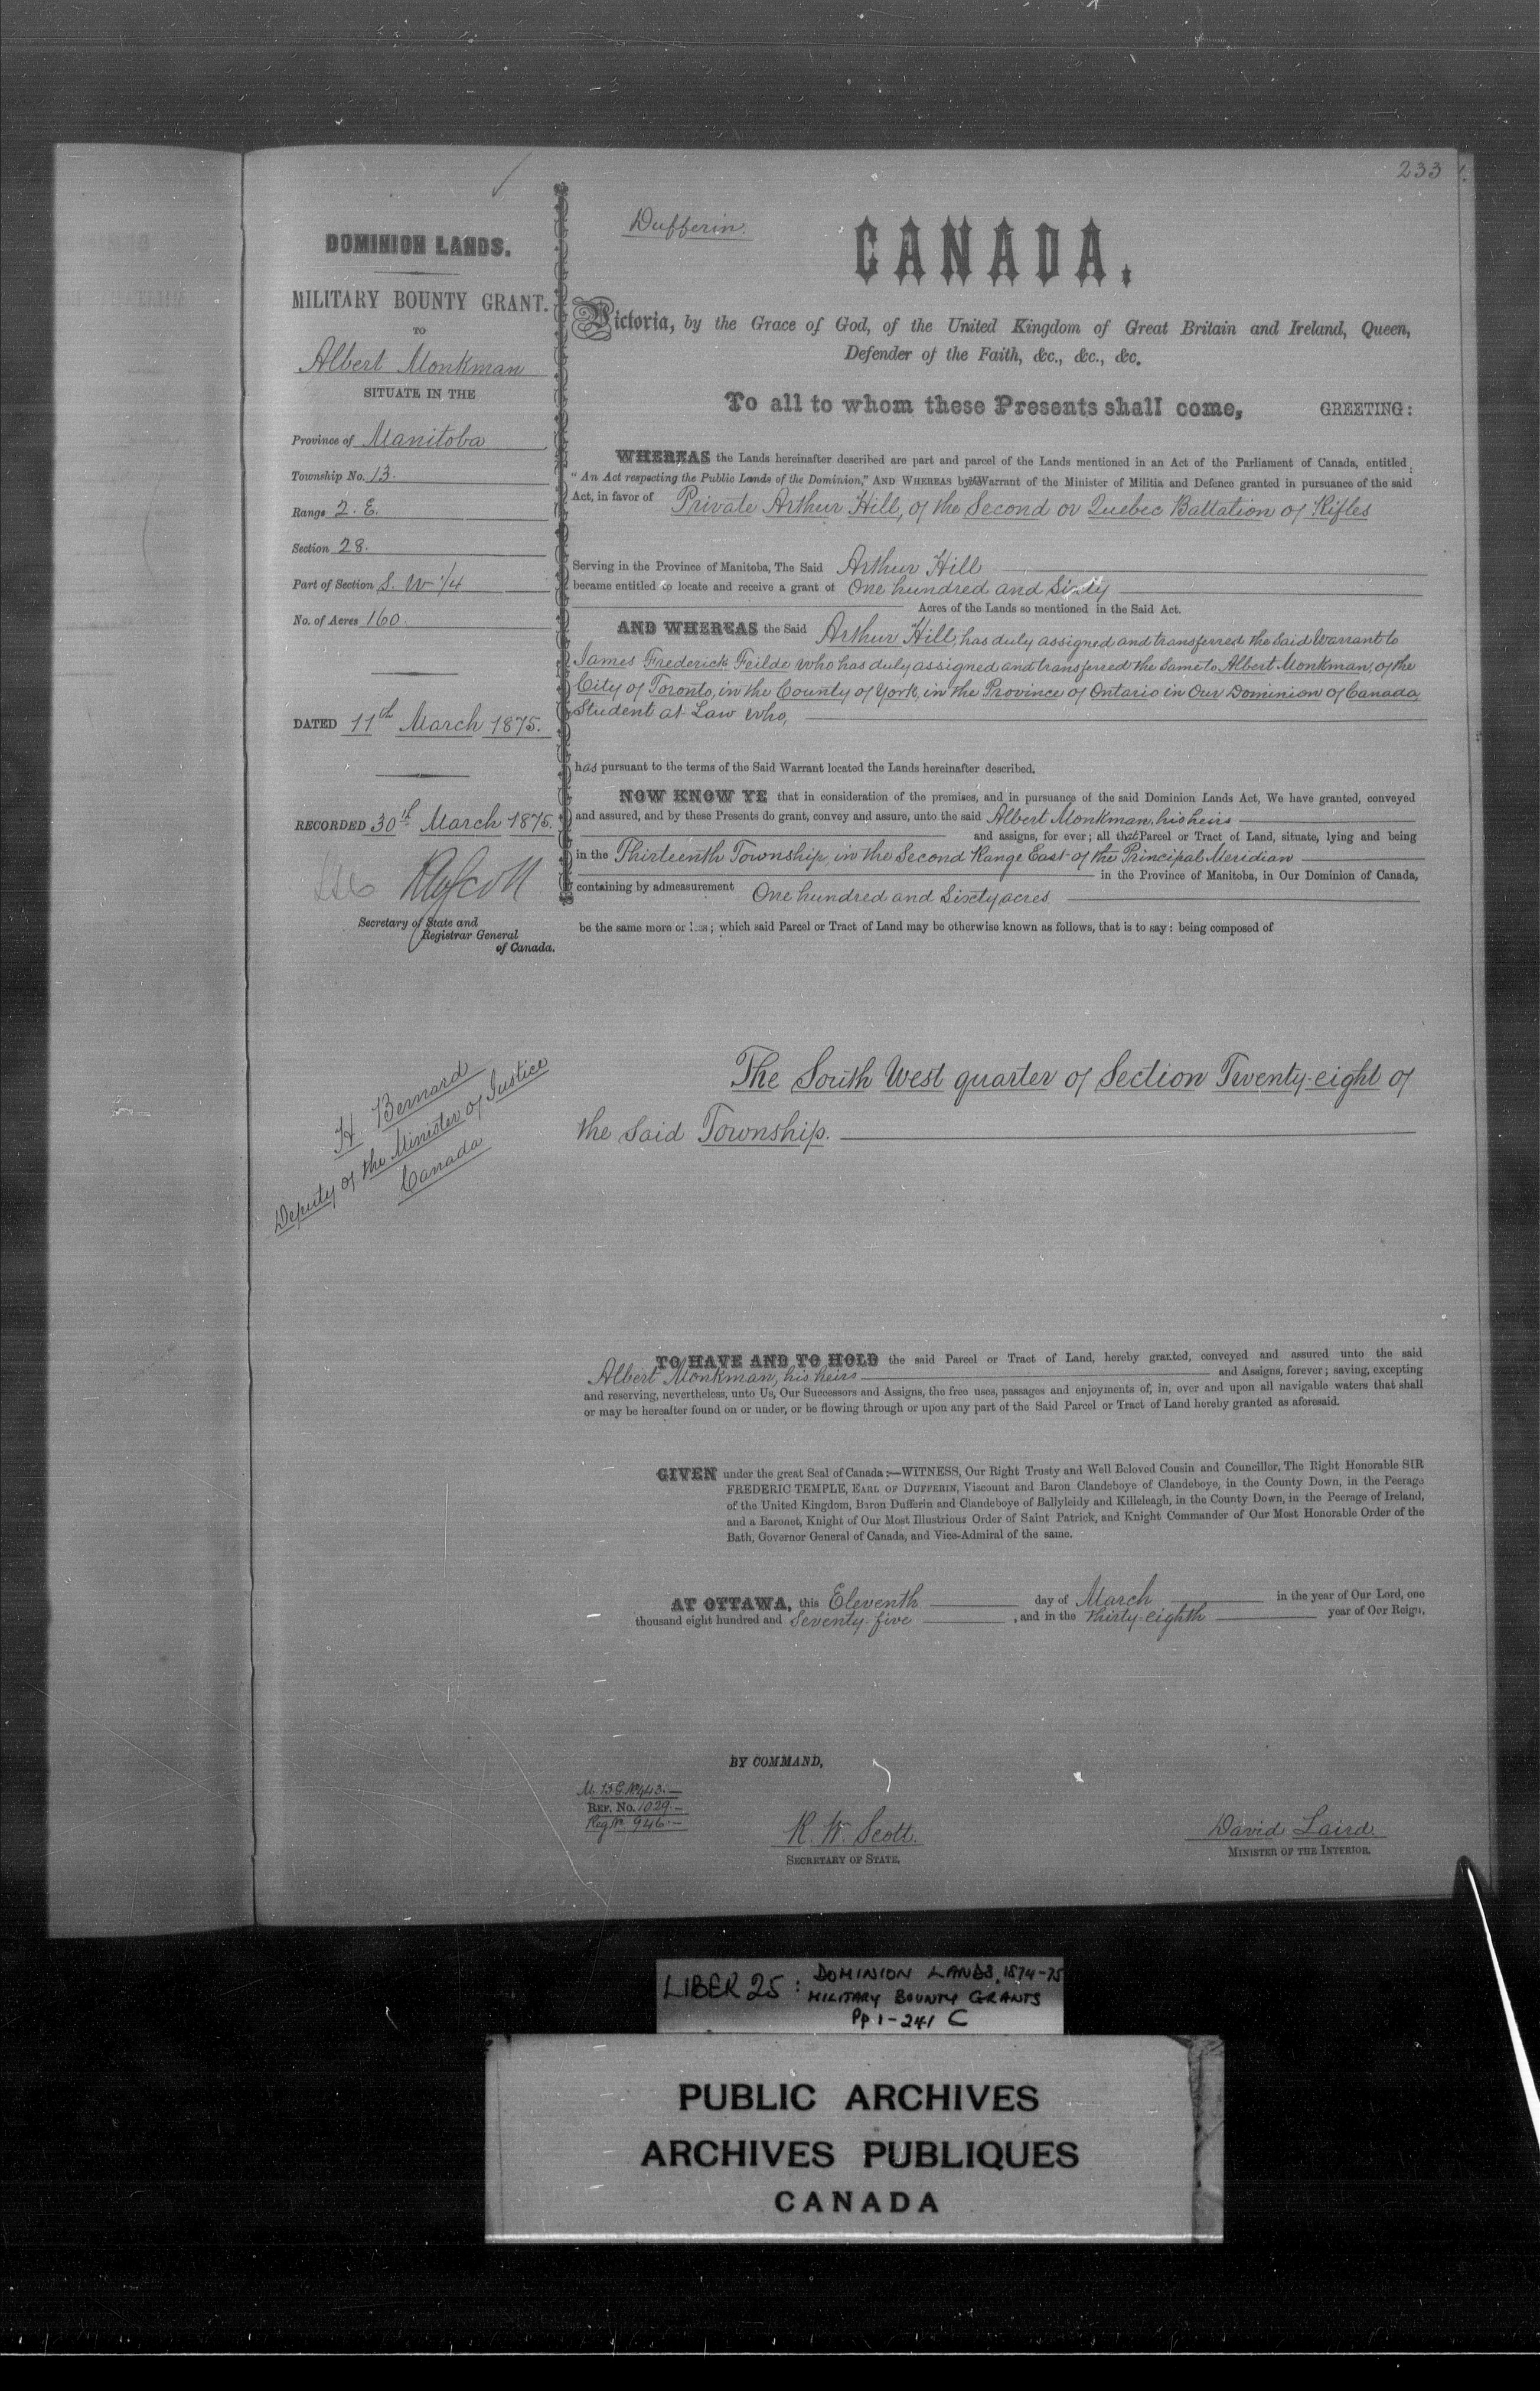 233
DOMINION LANDS.
MILITARY BOUNTY GRANT.
TO
Albert Monkman
SITUATE IN THE
Province of Manitoba
Township No. 13.
Range 2. E.
Section 28.
Part of Section S. W 1/4
No. of Acres 160.
DATED 11th March 1875.
RECORDED 30th March 1875.
RWScott
Secretary of State and
Registrar General
of Canada.
H. Bernard
Deputy of the Minister of Justice
Canada
Dufferin.
CANADA.
Victoria, by the Grace of God, of the United Kingdom of Great Britain and Ireland, Queen,
Defender of the Faith, &c., &c., &c.
To all to whom these Presents shall come, GREETING:
WHEREAS the Lands hereinafter described are part and parcel of the Lands mentioned in an Act of the Parliament of Canada, entitled
"An Act respecting the Public Lands of the Dominion," AND WHEREAS by Warrant of the Minister of Militia and Defence granted in pursuance of the said
Act, in favor of Private Arthur Hill, of the Second or Quebec Battation of Rifles
Serving in the Province of Manitoba, The Said Arthur Hill
became entitled to locate and receive a grant of One hundred and Sixty
Acres of the Lands so mentioned in the Said Act.
AND WHEREAS the Said Arthur Hill, has duly assigned and transferred the Said Warrant to
James Frederick Feilde who has duly assigned and transferred the Same to Albert Monkman, of the
City of Toronto, in the County of York, in the Province of Ontario in Our Dominion of Canada,
Student at Law who,
has pursuant to the terms of the Said Warrant located the Lands hereinafter described.
NOW KNOW YE that in consideration of the premises, and in pursuance of the said Dominion Lands Act, We have granted, conveyed
and assured, and by these Presents do grant, convey and assure, unto the said Albert Monkman, his heirs
and assigns, for ever; all that Parcel or Tract of Land, situate, lying and being
in the Thirteenth Township, in the Second Range East of the Principal Meridian
in the Province of Manitoba, in Our Dominion of Canada,
containing by admeasurement One hundred and Sixty acres
be the same more or less; which said Parcel or Tract of Land may be otherwise known as follows, that is to say: being composed of
The South West quarter of Section Twenty-eight of
the Said Township.
TO HAVE AND TO HOLD the said Parcel or Tract of Land, hereby granted, conveyed and assured unto the said
Albert Monkman, his heirs and Assigns, forever; saving, excepting
and reserving, nevertheless, unto Us, Our Successors and Assigns, the free uses, passages and enjoyments of, in, over and upon all navigable waters that shall
or may be hereafter found on or under, or be flowing through or upon any part of the Said Parcel or Tract of Land hereby granted as aforesaid.
GIVEN under the great Seal of Canada:—WITNESS, Our Right Trusty and Well Beloved Cousin and Councillor, The Right Honorable SIR
FREDERIC TEMPLE, EARL OF DUFFERIN, Viscount and Baron Clandeboye of Clandeboye, in the County Down, in the Peerage
of the United Kingdom, Baron Dufferin and Clandeboye of Ballyleidy and Killeleagh, in the County Down, in the Peerage of Ireland,
and a Baronet, Knight of Our Most Illustrious Order of Saint Patrick, and Knight Commander of Our Most Honorable Order of the
Bath, Governor General of Canada, and Vice-Admiral of the same.
AT OTTAWA, this Eleventh day of March in the year of Our Lord, one
thousand eight hundred and Seventy-five, and in the Thirty-eighth year of Our Reign.
BY COMMAND,
M. B G. No 443.
REF. No. 1029.
Reg No. 946.
R. W. Scott.
SECRETARY OF STATE.
David Laird.
MINISTER OF THE INTERIOR.
LIBER 25: DOMINION LANDS, 1874-75
MILITARY BOUNTY GRANTS
Pp 1-241 C
PUBLIC ARCHIVES
ARCHIVES PUBLIQUES
CANADA